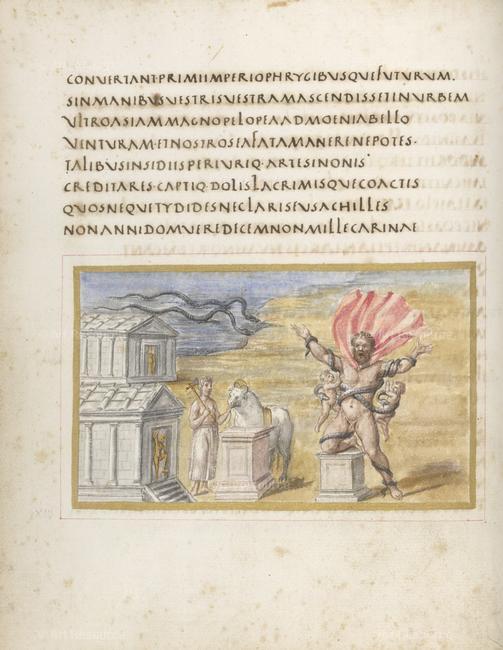 CONVERTANT·PRIMIIMPERIOPHRYGIBVSQVEFVTVRVM.
SINMANIBVSVESTRISVESTRAMASCENDISSETINVRBEM
VLTROASIAMMAGNOPELOPEAADMOENIABELLO
VENTVRAM·ETNOSTROSEAFATAMANERENEPOTES·
TALIBVSINSIDIISPERIVRIQ·ARTESINONIS
CREDITARES·CAPTIQ·DOLISLACRIMISQVECOACTIS
QVOSNEQVETYDIDESNECLARISEVSACHILLES
NONANNIDOMVEREDECEMNONMILLECARINAE